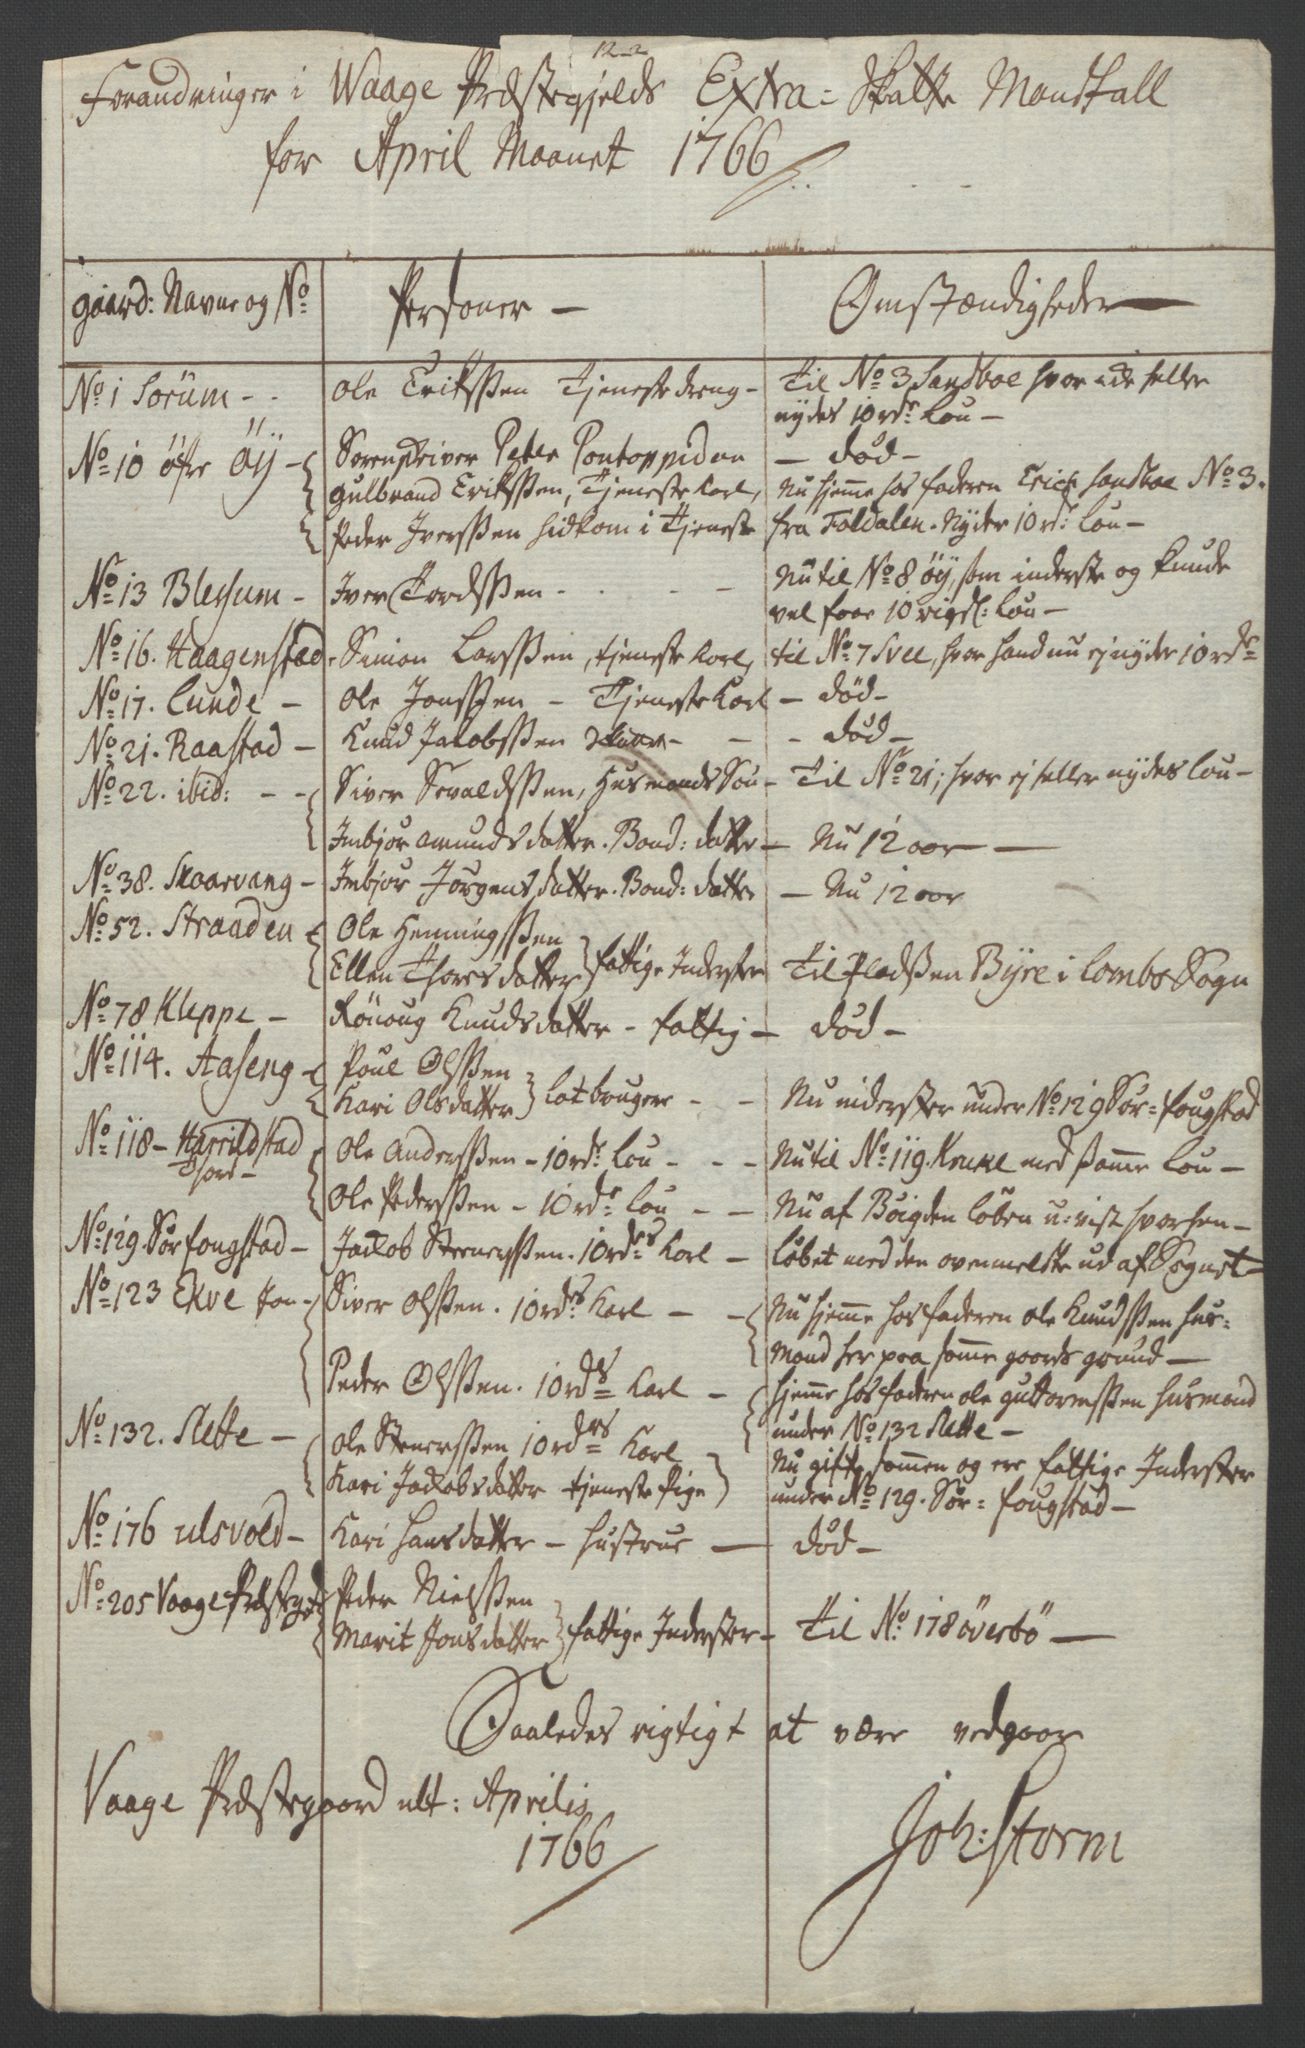 12-2
Forandringer i Waage Præstegjelds Extra-Skatte Mandtall
for April Maanet 1766
Gaard: Navne og No
Personer —
Omstændigheder —
No 1 Sorum - -
Ole Erikssen Tjeneste dreng -
Til No 3 Sandboe hvor ide heller
nydes 10 rdr Løn —
No 10 öfre Öÿ -
Sorenskriver Peter Pontoppidan
— död -
Gulbrand Erikssen, Tjeneste Karl,
Nu hjemme hos faderen Erich Sandboe No 3.
Peder Iverssen hidkom i Tjeneste
fra Foldalen. Nyder 10 rd: Løn —
No 13 Blessum -
Iver Tordssen - - - -
Nu til No 8 öÿ, som inderste og kunde
vel faae 10 rigsd: Løn —
No 16. Haagenstad
Simon Larssen, tjeneste Karl,
til No 7 Svee, hvor hand nu ej nyder 10 rdr
No 17. Lunde -
Ole Jonssen - Tjeneste Karl
— död -
No 21. Raastad -
Knud Jakobssen - -
- död -
No 22. ibid: - -
Siver Sevaldssen, Husmands Søn -
Til No 21; hvor ej heller nydes Løn -
Imbjør Amundsdatter. Bond: datter -
Nu 12 aar —
No 38. Skaarvang -
Imbjør Jörgensdatter. Bond: datter
— Nu 12 aar
No 52. Straaden
Ole Henningssen
Ellen Thoresdatter } fattige Inderster
Til Pladssen Byre i Lombs Sogn
No 78 Kleppe -
Rönoug Knudsdatter - fattig -
död -
No 114. Aaseng -
Poul Olssen
Kari Olsdatter } lotbrugere - -
Nu inderster under No 129 Sör-fougstad
No 118 - Harrildstad
Ole Anderssen - 10 rdr Løn - - -
Nu til No 119. Kruke med samme Løn -
Ole Pederssen - 10 rdr Løn - -
Nu af Böigden löben u-vist hvorhen -
No 129. Sör fougstad -
Jacob Stenerssen. 10 rdrs Karl -
Löbet med den ovenmelte ud af Sognet
No 123 Ekre
Siver Olssen. 10 rdrs Karl - -
Nu hjemme hos faderen Ole Knudssen hus-
mand her paa samme gaards grund —
Peder Olssen. 10 rdrs Karl -
hjemme hos faderen Ole Guttormssen husmand
under No 132 Slette -
No 132. Slette -
Ole Stenerssen 10 rdrs Karl
Nu gifte sammen og ere fattige Inderster
Kari Jacobsdatter tjeneste Pige
under No 129. Sör-fougstad -
No 176 Ulsvold -
Kari Hansdatter - hustrue —
död -
No 205 Vaage Præstegrd
Peder Nielssen
Marit Jonsdatter } fattige Inderster -
Til No 178 överbö —
Saaledes rigtigt at være vedgaar
Vaage Præstegaard ult: Aprilis
1766
Joh: Storm